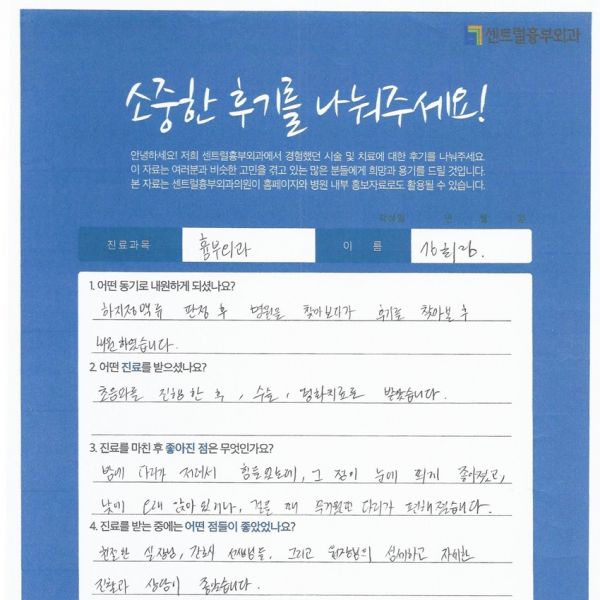 센트럴흉부외과
소중한 후기를 나눠주세요!
안녕하세요! 저희 센트럴흉부외과에서 경험했던 시술 및 치료에 대한 후기를 나눠주세요.
이 자료는 여러분과 비슷한 고민을 겪고 있는 많은 분들에게 희망과 용기를 드릴 것입니다.
본 자료는 센트럴흉부외과의원이 홈페이지와 병원 내부 홍보자료로도 활용될 수 있습니다.
작성일 년 월 일
진료과목 흉부외과 이 름
1. 어떤 동기로 내원하게 되셨나요?
하지정맥류 판정 후 병원을 찾아보다가 후기로 찾아본 후
내원하였습니다.
2. 어떤 진료를 받으셨나요?
초음파를 진행한 후, 수술, 경화치료로 받았습니다.
3. 진료를 마친 후 좋아진 점은 무엇인가요?
밤에 다리가 저려서 힘들었는데, 그 점이 눈에 띄게 좋아졌고,
낮에 오래 앉아있거나, 걸을 때 무거웠던 다리가 편해졌습니다.
4. 진료를 받는 중에는 어떤 점들이 좋았었나요?
친절한 실장님, 간호사 선생님들, 그리고 원장님의 섬세하고 자세한
진찰과 상담이 좋았습니다.